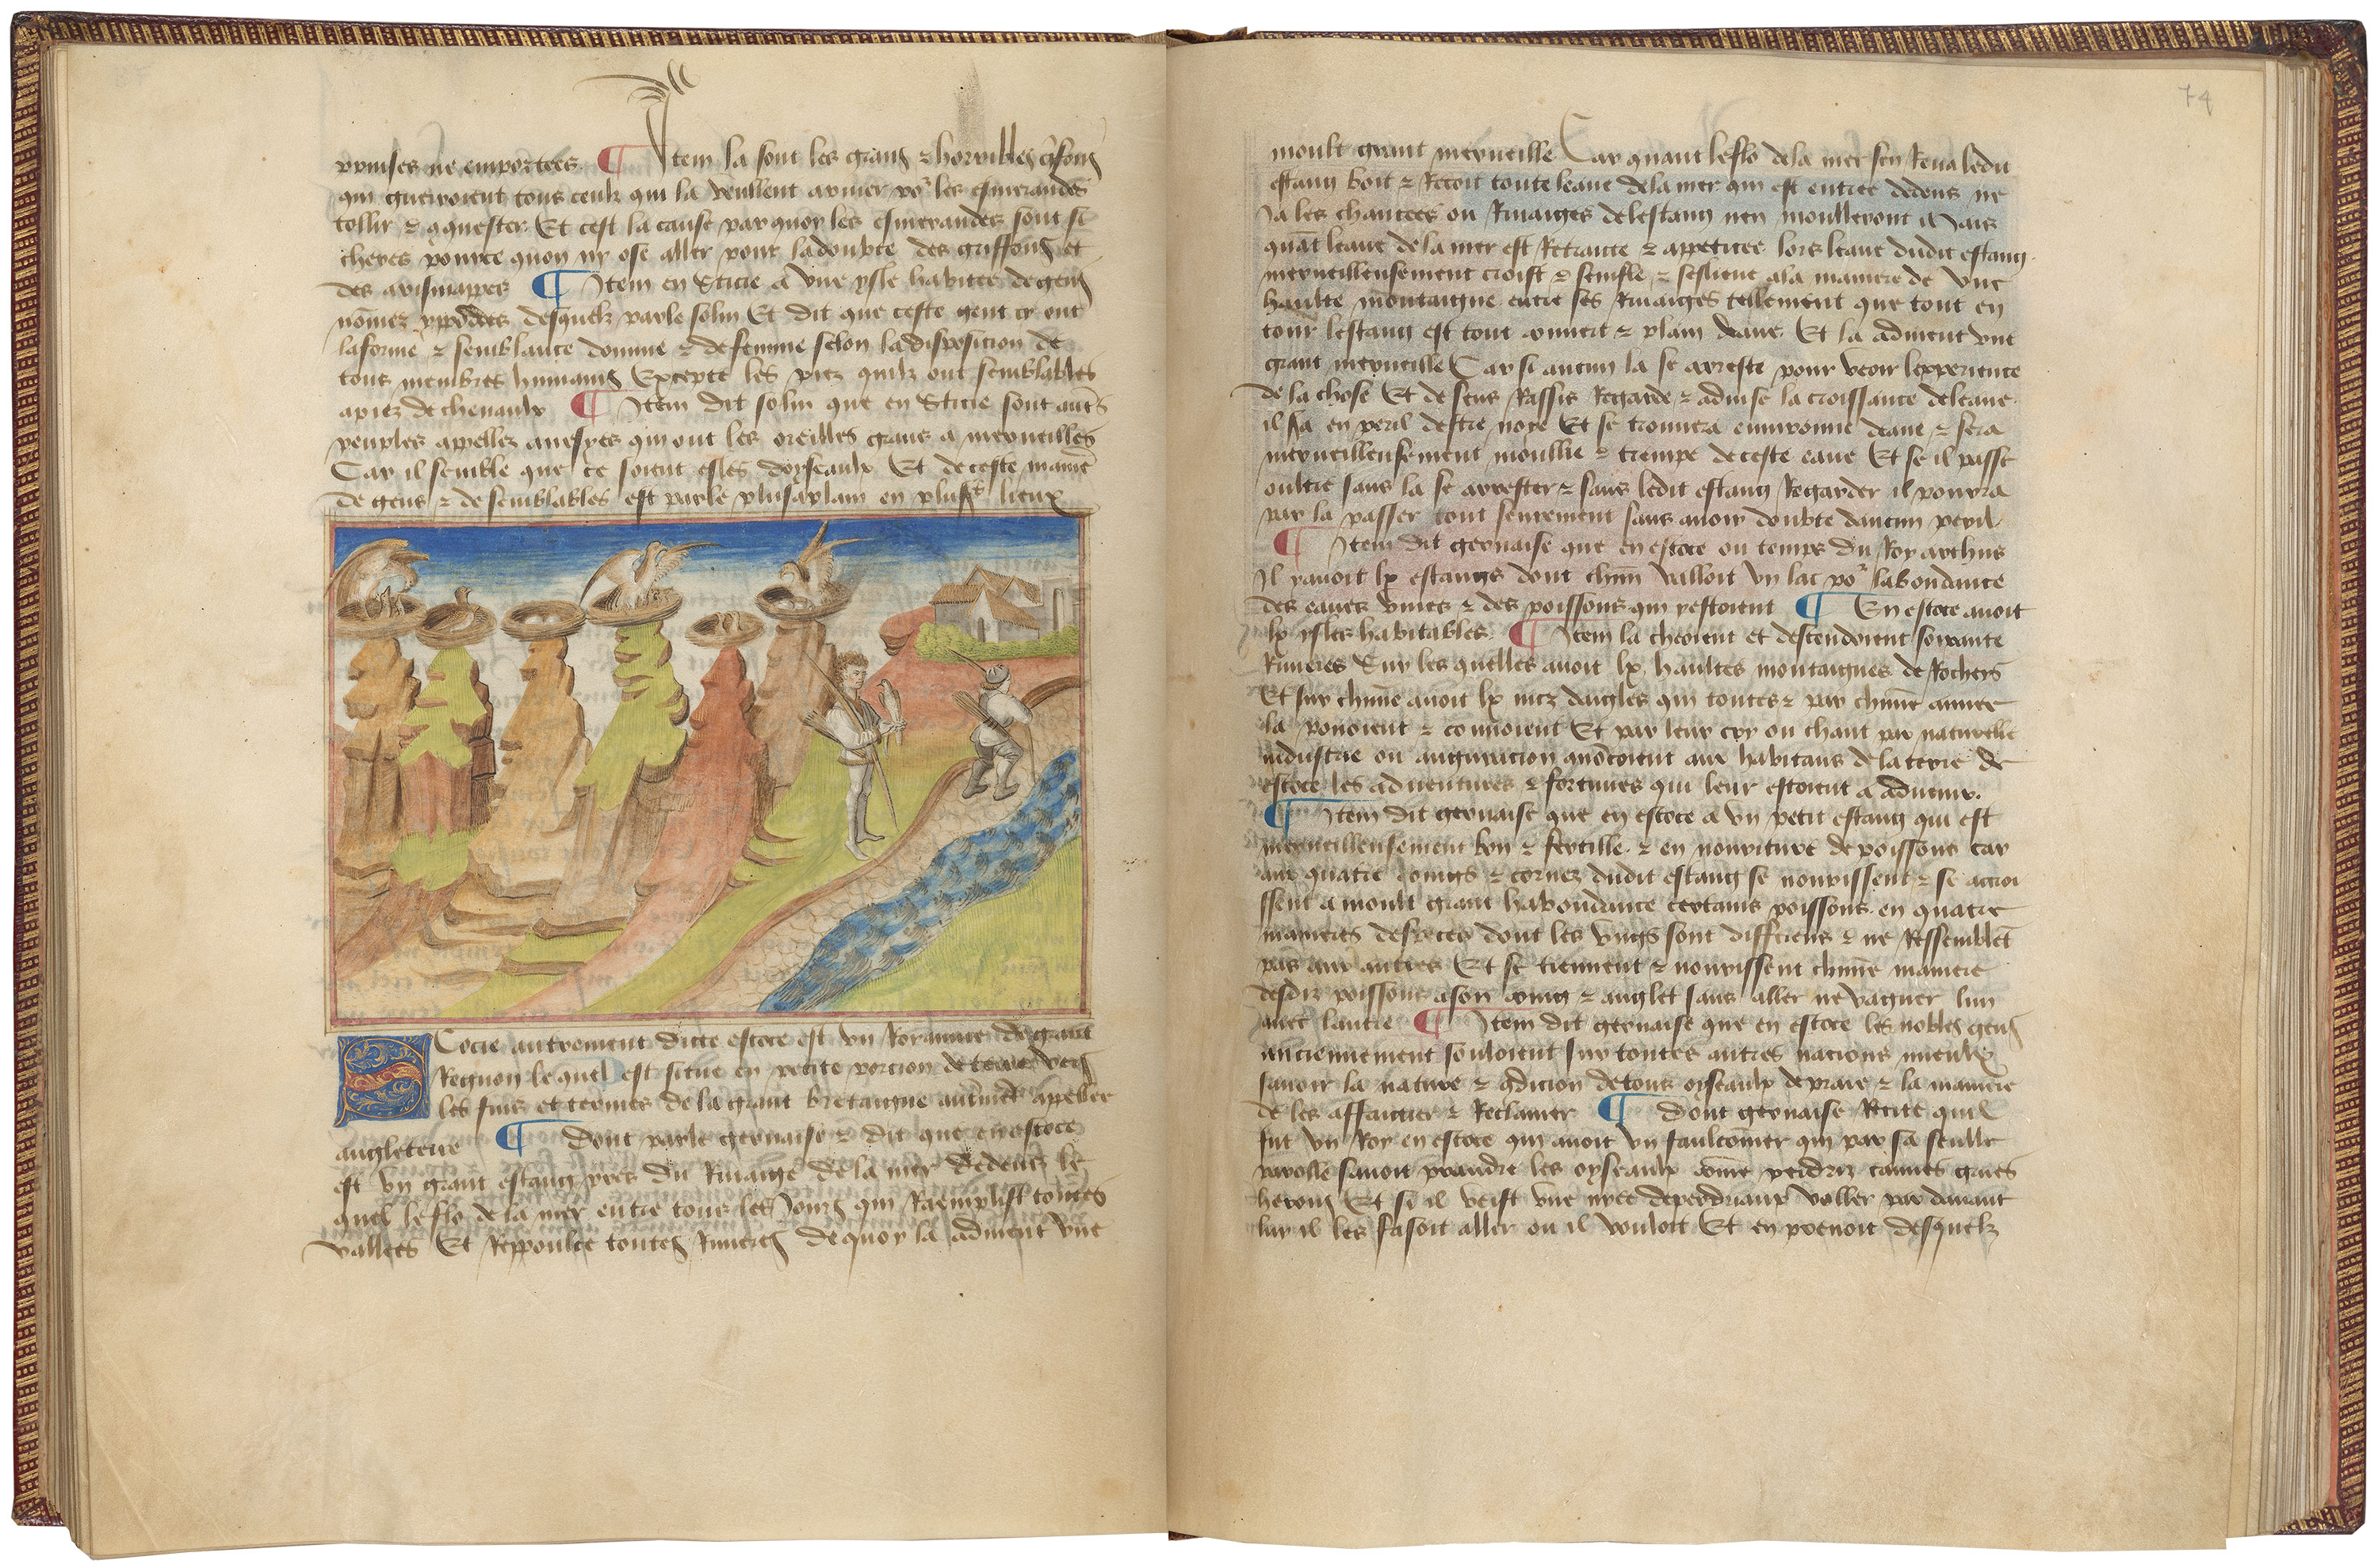 prinses ne emportees ¶ Item la sont les grans & horribles grifons
qui guerroient tous ceulx qui la veullent arriver por les esmeraudes
tollir & aquester Et cest la cause par quoy les esmeraudes sont si
cheres pource quon ny ose aller pour la doubte des griffons et
des arismappes ¶ Item en Sticie a une ysle habitee de gens
nomez ypodes desquelz parle solin Et dit que ceste gent cy ont
la forme & semblance domme & de femme selon la disposition de
tous membres humains Excepte les piez quilz ont semblables
a piez de chevaulx ¶ Item dit solin que en Sticie sont auts
peuples appellez anesyes qui ont les oreilles grans a merveilles
Car il semble que ce soient esles doyseaulx Et de ceste maniere
de gens & de semblables est parle plus a plain en plus lieux
Scocie autrement dicte escoce est un Royaume de grant
Regnon lequel est situe en petite porcion de terre vers
les fins et termes de la grant bretaigne autremet appellee
angleterre ¶ dont parle gervaise & dit que en escoce
est un grant estang pres du Rivaige de la mer dedens le
quel le flo de la mer entre tous les Jours qui Raemplist toutes
vallees Et Reppoulce toutes Rivieres de quoy la advient une
74
moult grant merveille Car quant le flo de la mer sen Reva ledit
estang boit & Recoit toute leaue de la mer qui est entree dedens ne
Ja les chaucees ou Rivaiges de lestang nen moulleront Mais
quat leaue de la mer est Retraicte & appeticee lors leaue dudit estang
merveilleusement croist & senfle & seslieve a la maniere de une
haulte montaigne entre ses Rivaiges tellement que tout en
tour lestang est tout couvert & plain deaue Et la advient une
grant merveille Car si aucun la se arreste pour veoir lexperience
de la chose Et de sens Rassis Regarde & advise la croissance de leaue
il sa en peril destre noye Et se trouvera environne deaue & sera
merveilleusement moullie & trempe de ceste eaue Et se il passe
oultre sans la se arrester & sans ledit estang Regarder il pourra
par la passer tout seurement sans avoir doubte daucun peril
¶ Item dit gervaise que en escoce ou temps du Roy arthus
Il y avoit lx estangs dont chun valloit un lac por labondance
des eaues vives & des poissons qui y estoient ¶ En escoce avoit
lx ysles habitables ¶ Item la cheoient et descendoient soixante
Rivieres Sur lesquelles avoit lx haultes montaignes de Rochers
Et sur chune avoit lx niz daigles qui toutes & par chune annee
la ponoient & couvoient Et par leur cry ou chant par naturelle
industrie ou auguracion anoncoient aux habitans de la terre de
escoce les adventures & fortunes qui leur estoient a advenir.
¶ Item dit gervaise que en escoce a un petit estang qui est
merveilleusement bon & fertille & en nourriture de poissons car
aux quatre coings & cornez dudit estang se nourrissent & se acroi
ssent a moult grant habondance certains poissons en quatre
manieres despeces dont les ungs sont differens & ne Ressemblet
pas aux autres Et se tiennent & nourrissent chune maniere
desdiz poissons a son coing & anglet sans aller ne vaguer lun
avec lautre ¶ Item dit gervaise que en escoce les nobles gens
anciennement souloient sur toutes autres nacions mieulx
savoir la nature & condicion de tous oyseaulx de proie & la maniere
de les affaictier & Reclamer ¶ dont gervaise Recite quil
fut un Roy en escoce qui avoit un faulconnier qui par sa seulle
parolle savoit prandre les oyseaulx come perdriz cannes grues
herons Et si il veist une nyee de perdriaux voller par devant
luy il les fasoit aller ou il vouloit Et en prenoit desquelz